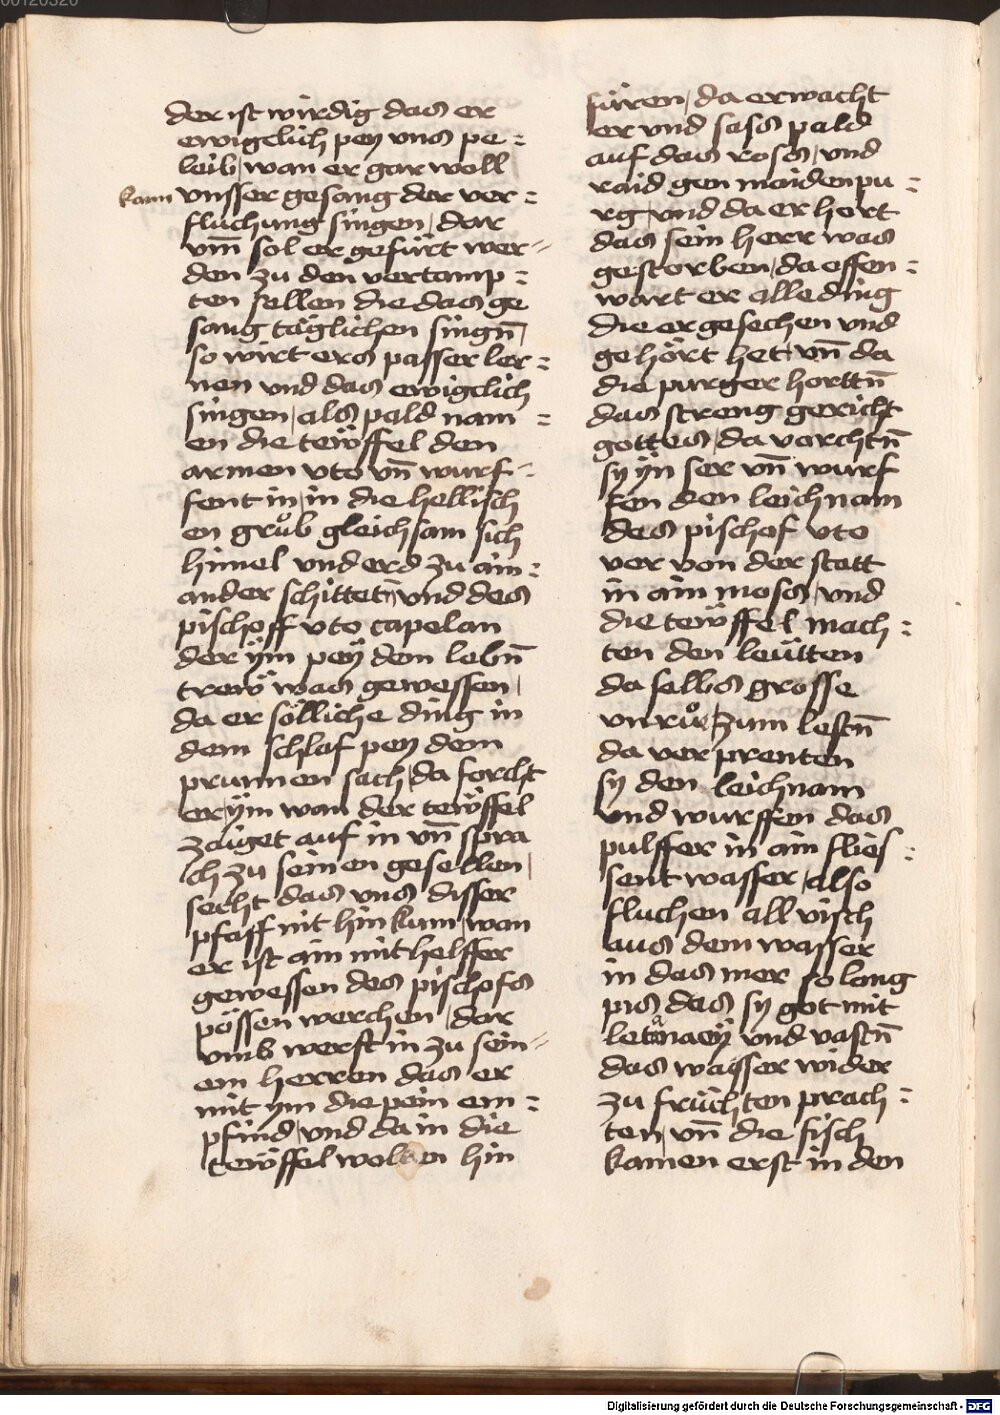 der ist wirdig das er
ewigclich peÿ vns pe=
leib, wan er gar woll
kann vnsser gesang der ver=
fluchung singen, dar
vm̄ sol er gefürt wer=
den zu den vertamp=
ten sellen die das ge
sang täglichen singn̄,
so wirt ers passer ler=
nen vnd das ewigclich
singen, als pald nam=
en die tewffel den
armen vto vn̄ wurf=
fent in, in die hellisch
en grůb gleichsam sich
himel vnd erd zu ain=
ander schitteten, vnd des
pischoff vto capelan
der ÿm peÿ dem lebn̄
trew was gewessen,
da er sölliche ding in
dem schlaf peÿ dem
prunnen sach, da forcht
er ÿm wan der tewffel
zaiget auf in vn̄ spra
ch zu seinen gesellen,
secht das vns disser
pfaff nit hin kum, wan
er ist ain mithelffer
gewessen des pischofs
pössen werchen, dar
vmb werft in zu sein=
em herren das er
mit ym die pein em=
pfind, vnd da in die
tewffel wolten hin
füren, da erwacht
er vnd sass pald
auf das ross, vnd
raid gen maidenpu=
rg, vnd da er hort
das sein herr was
gestorben, da offen=
wart er alle ding
die er gesechen vnd
gehört het, vn̄ da
die purger horttn̄
das streng gericht
gottes, da vorchtn̄
sy ÿn ser vn̄ wurf
fen den leichnam
des pischof vto
ver von der statt
in ain moss, vnd
die tewffel mach=
ten den leütten
da selbs grosse
vnrůe, zum lestn̄
da verprenten
sy den leichnam
vnd wurffen das
pulffer in ain flies=
sent wasser, also
fluchen all visch
aus dem wasser
in das mer so lang
pis das sy got mit
letanaeÿ vnd vastn̄
das wasser wider
zu früchten prach=
ten, vn̄ die fisch
kamen erst in den
Digitalisierung gefördert durch die Deutsche Forschungsgemeinschaft - DFG